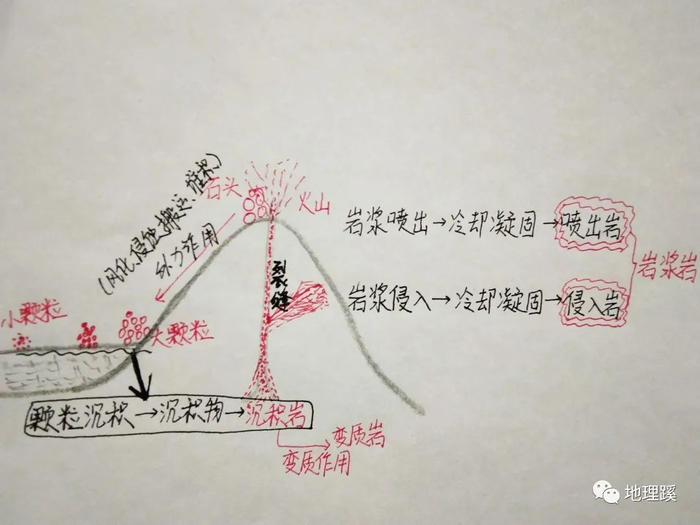 (风化、侵蚀、搬运、堆积)
外力作用
石头
火山
裂缝
小颗粒
大颗粒
岩浆喷出→冷却凝固→喷出岩
岩浆侵入→冷却凝固→侵入岩
岩浆岩
颗粒沉积→沉积物→沉积岩
变质作用
变质岩
地理蹊